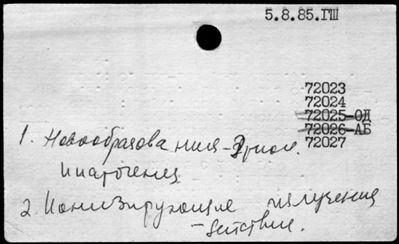 5.8.85.ГШ
72023
72024
72025-ОД
72026-АБ
72027
1. Новообразования - Этиол.
и патогенез
2. Ионизирующие излучения
- действие.